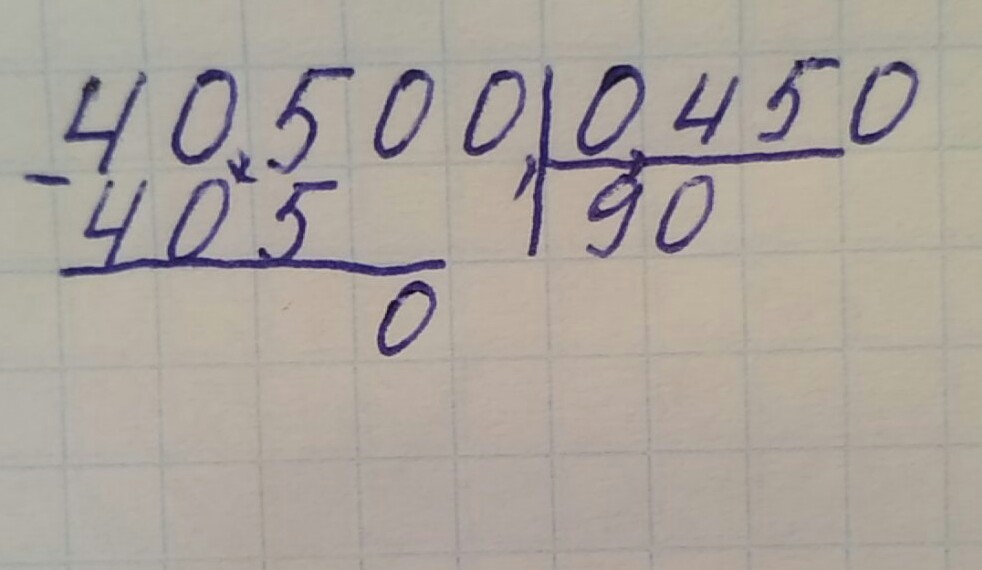 40,500, 0,450
- 405 90
0